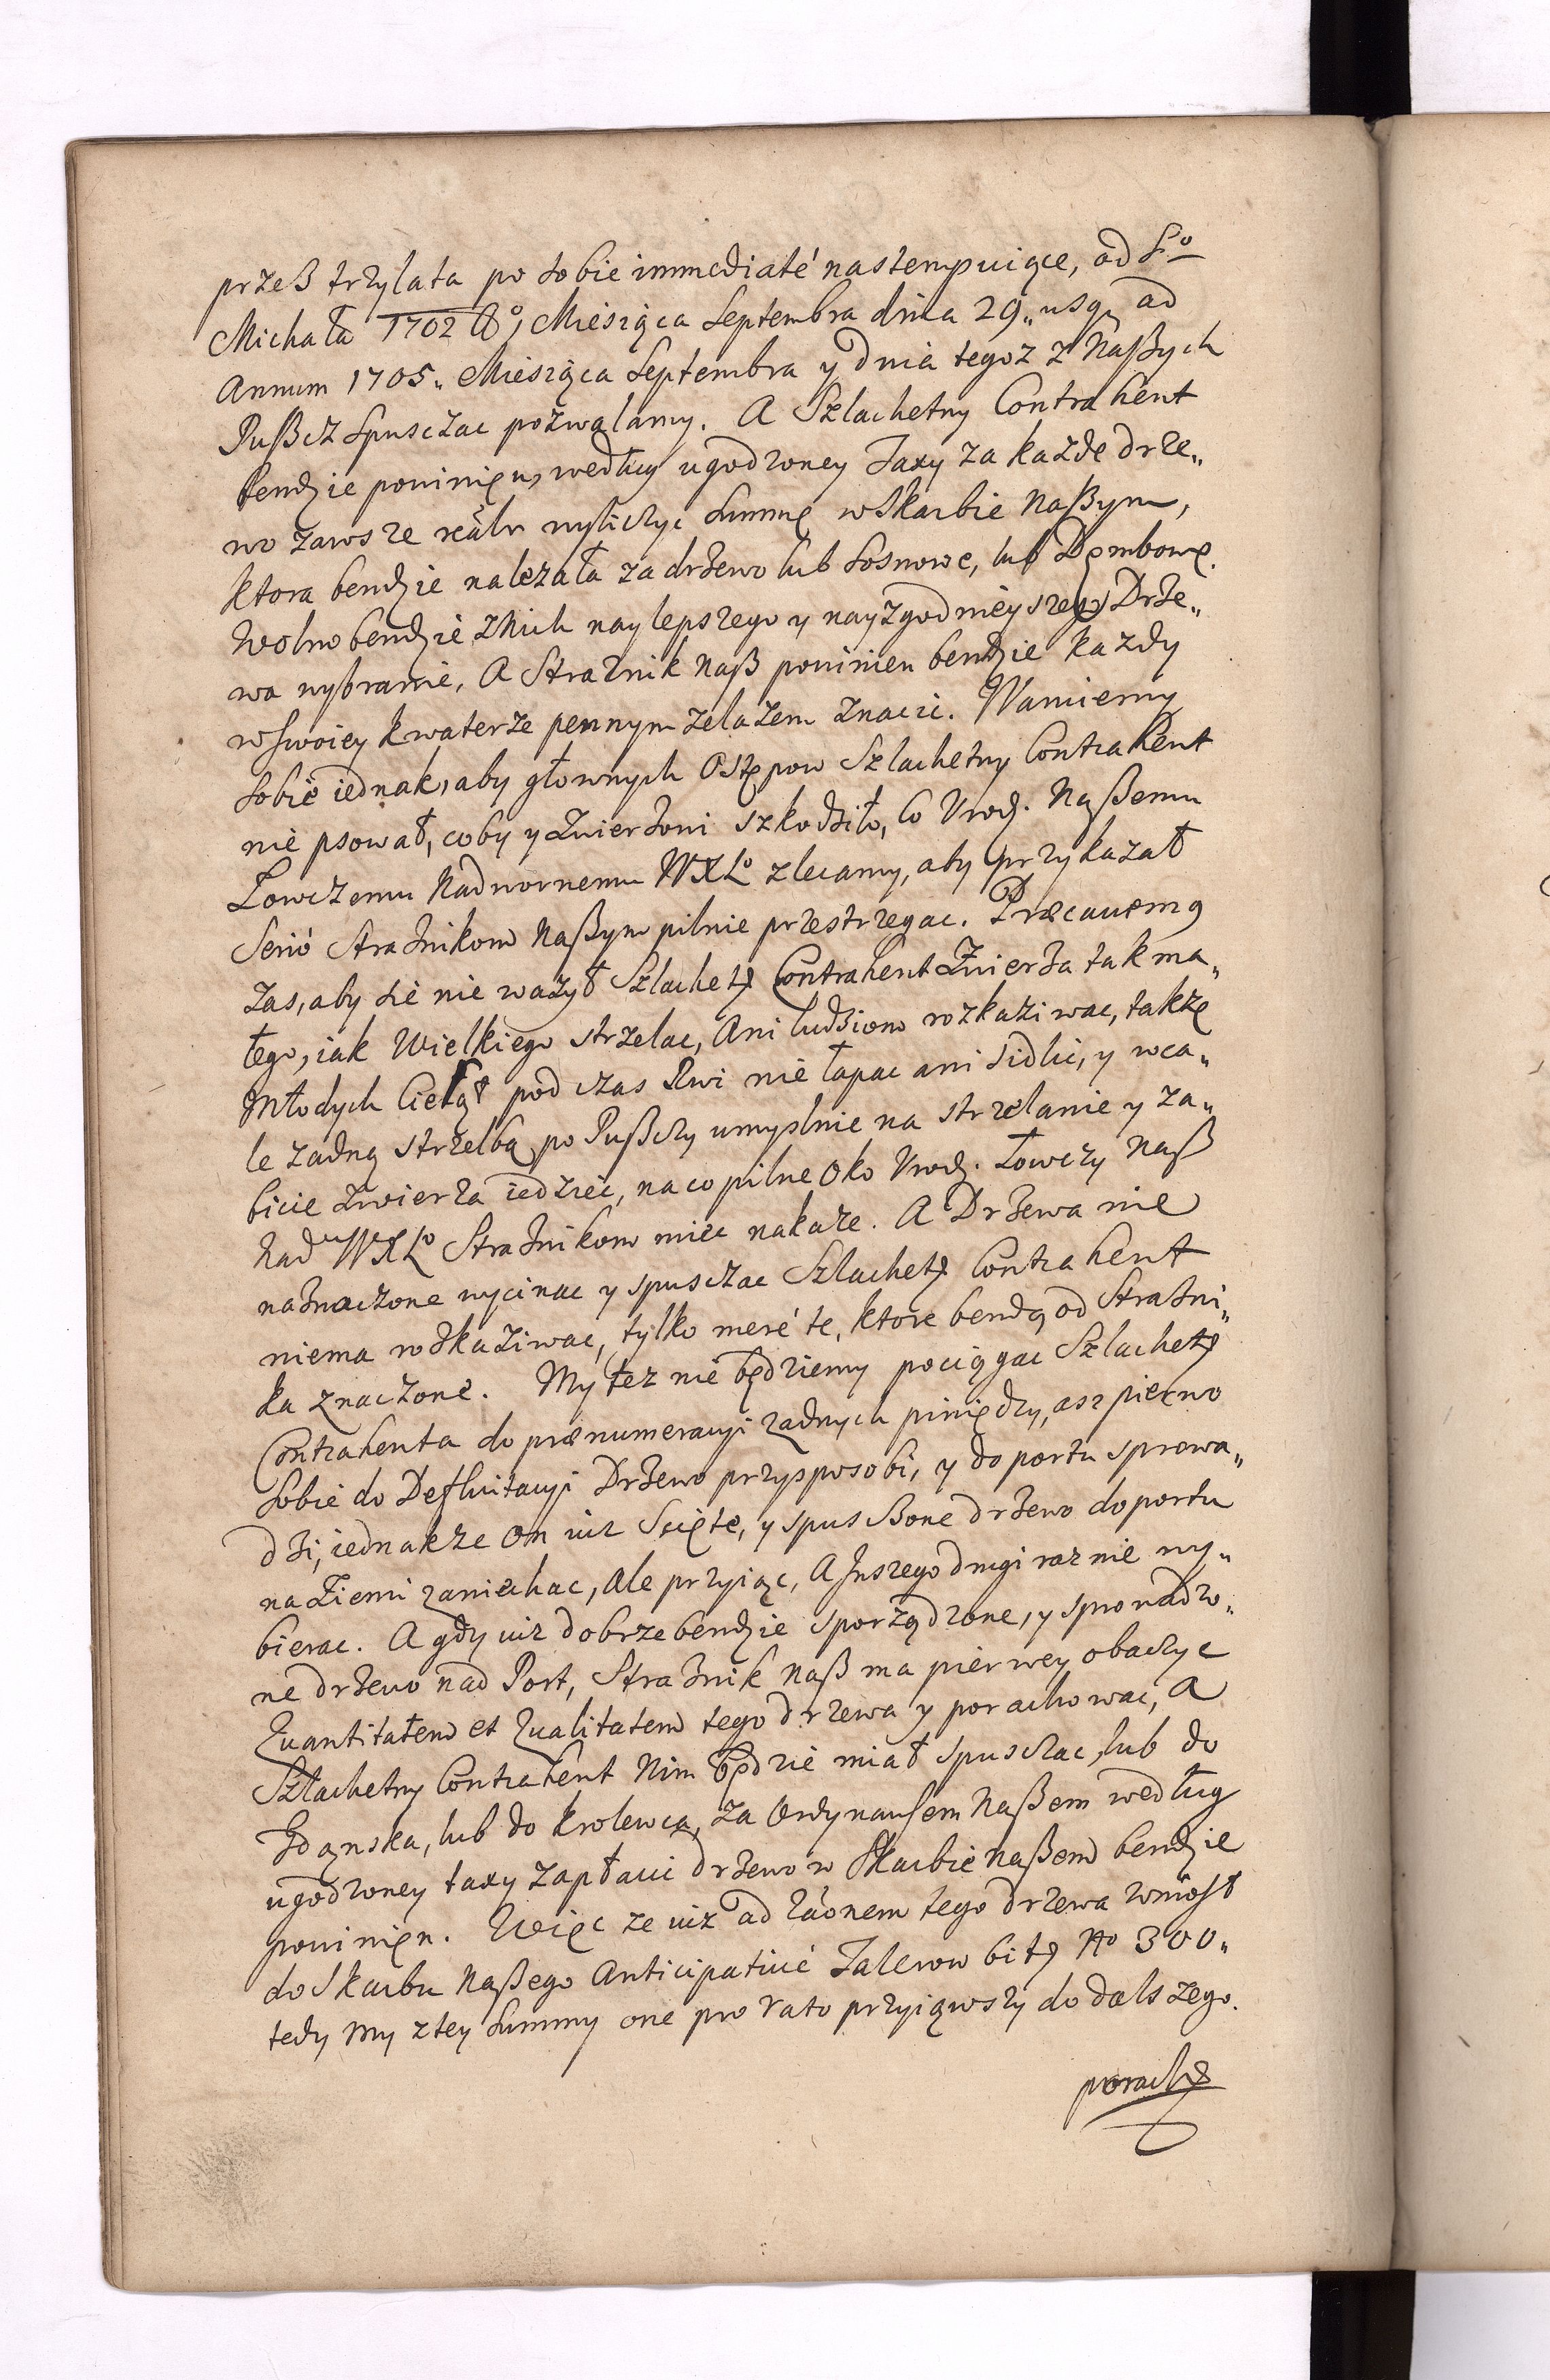 przeß trzylata po sobie immediaté nastempuiące, od So
Michała 1702 Ao, Miesiąca Septembra dnia 29„ usq ad
Annum 1705„ Miesiąca Septembra y dnia tegoz z Naßych
Pußcz spusczac pozwalamy. A Szlachetny Contrahent
bendzie powinięn, według ugodzoney Taxy za każde drze„
wo zawsze reálr wyliczyc summę w Skarbie Naßym,
ktora bendzie należała za drżewo lub sosnowe, lub Dęmbowę.
Wolno bendzie znich naylepszego y nayzgodnieyszego Drże„
wa wybranie, A Strażnik Naß powinien bendzie każdy
w swoiey kwaterże pewnym żelażem znacic. Waruiemy
sobie iednak, aby głownych Ostępow Szlachetny Contrahent
nie psował, coby y Zwierżoni szkodziło, Co Urodz. Naßemu
Łowczemu Nadwornemu WXLo zlecamy, aby przykazał
Serió Strażnikom Naßym pilnie przestrzegac. Præcauemq
zas, aby się nie ważył Szlachet Contrahent Zwierża tak ma„
łego, iak Wielkiego strzelac, Ani ludziom rozkaziwac, także
Młodych Cieląt pod czas Rwi nie łapac ani sidlic, y wca„
le żadną strzelbą po Pußczy umyslnie na strzelanie y za„
bicie zwierza iedzieć, na co pilne Oko Urodz. Łowczy Naß
Nadw WXLo Strażnikom miec nakaże. A Drżewa nie
naznaczone wycinac y spusczac Szlachet Contrahent
niema rozkaziwac, tylko meré te, ktore bendą od Strażni„
ka znaczone. My też nie będziemy pociągac Szlachet
Contrahenta do prænumeracyi żadnych piniędzy, asz pierwo
sobie do Defluitacyi Drżewo przysposobi, y do portu sprowa„
dźi, iednakże on iuż Scięte, y spusßone drżewo do portu
na Ziemi zaniechac, Ale przyiąc, A Inszego drugi raz nie wy„
bierac. A gdy iuż dobrze bendzie sporządzone, y sprowadzo„
ne drżewo nad Port, Strażnik Naß ma pierwey obaczyc
Quantitatem et Qualitatem tego drzewa y porachowac, A
Szlachetny Contrahent Nim będzie miał spusczac, lub do
Gdąnska, lub do Krolewca, za Ordynansem Naßem według
ugodzoney taxy zapłacic drżewo w Skarbie Naßem bendzie
powinięn. Więc ze iuż ad rãonem tego drzewa wniosł
do Skarbu Naßego Anticipativé Talerow bit No 300„
tedy my z tey summy one pro rato przyiąwszy do dalszego.
porach